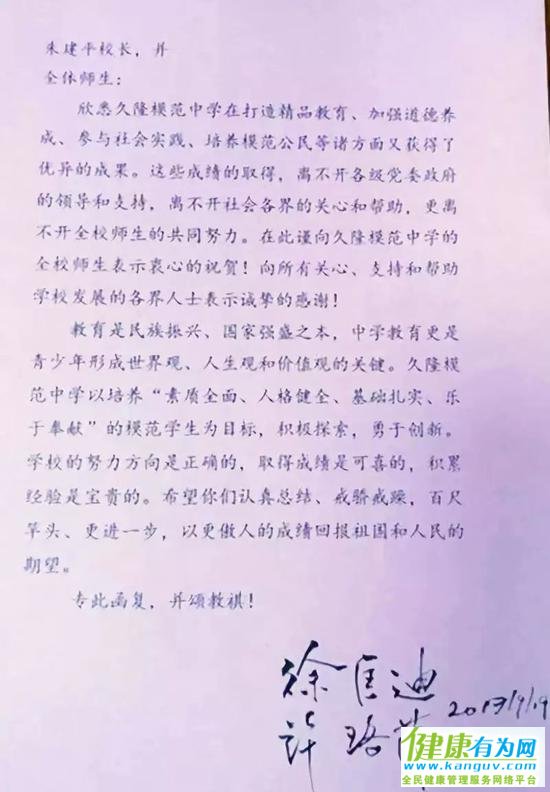 朱建平校长，并
全体师生：
欣悉久隆模范中学在打造精品教育、加强道德养
成、参与社会实践、培养模范公民等诸方面又获得了
优异的成果。这些成绩的取得，离不开各级党委政府
的领导和支持，离不开社会各界的关心和帮助，更离
不开全校师生的共同努力。在此谨向久隆模范中学的
全校师生表示衷心的祝贺！向所有关心、支持和帮助
学校发展的各界人士表示诚挚的感谢！
教育是民族振兴、国家强盛之本，中学教育更是
青少年形成世界观、人生观和价值观的关键。久隆模
范中学以培养“素质全面、人格健全、基础扎实、乐
于奉献”的模范学生为目标，积极探索，勇于创新。
学校的努力方向是正确的，取得成绩是可喜的，积累
经验是宝贵的。希望你们认真总结、戒骄戒躁，百尺
竿头、更进一步，以更傲人的成绩回报祖国和人民的
期望。
专此函复，并颂教祺！
徐匡迪
许珞萍 2013/9/19
健康有为网
www.kanguv.com
全民健康管理服务网络平台